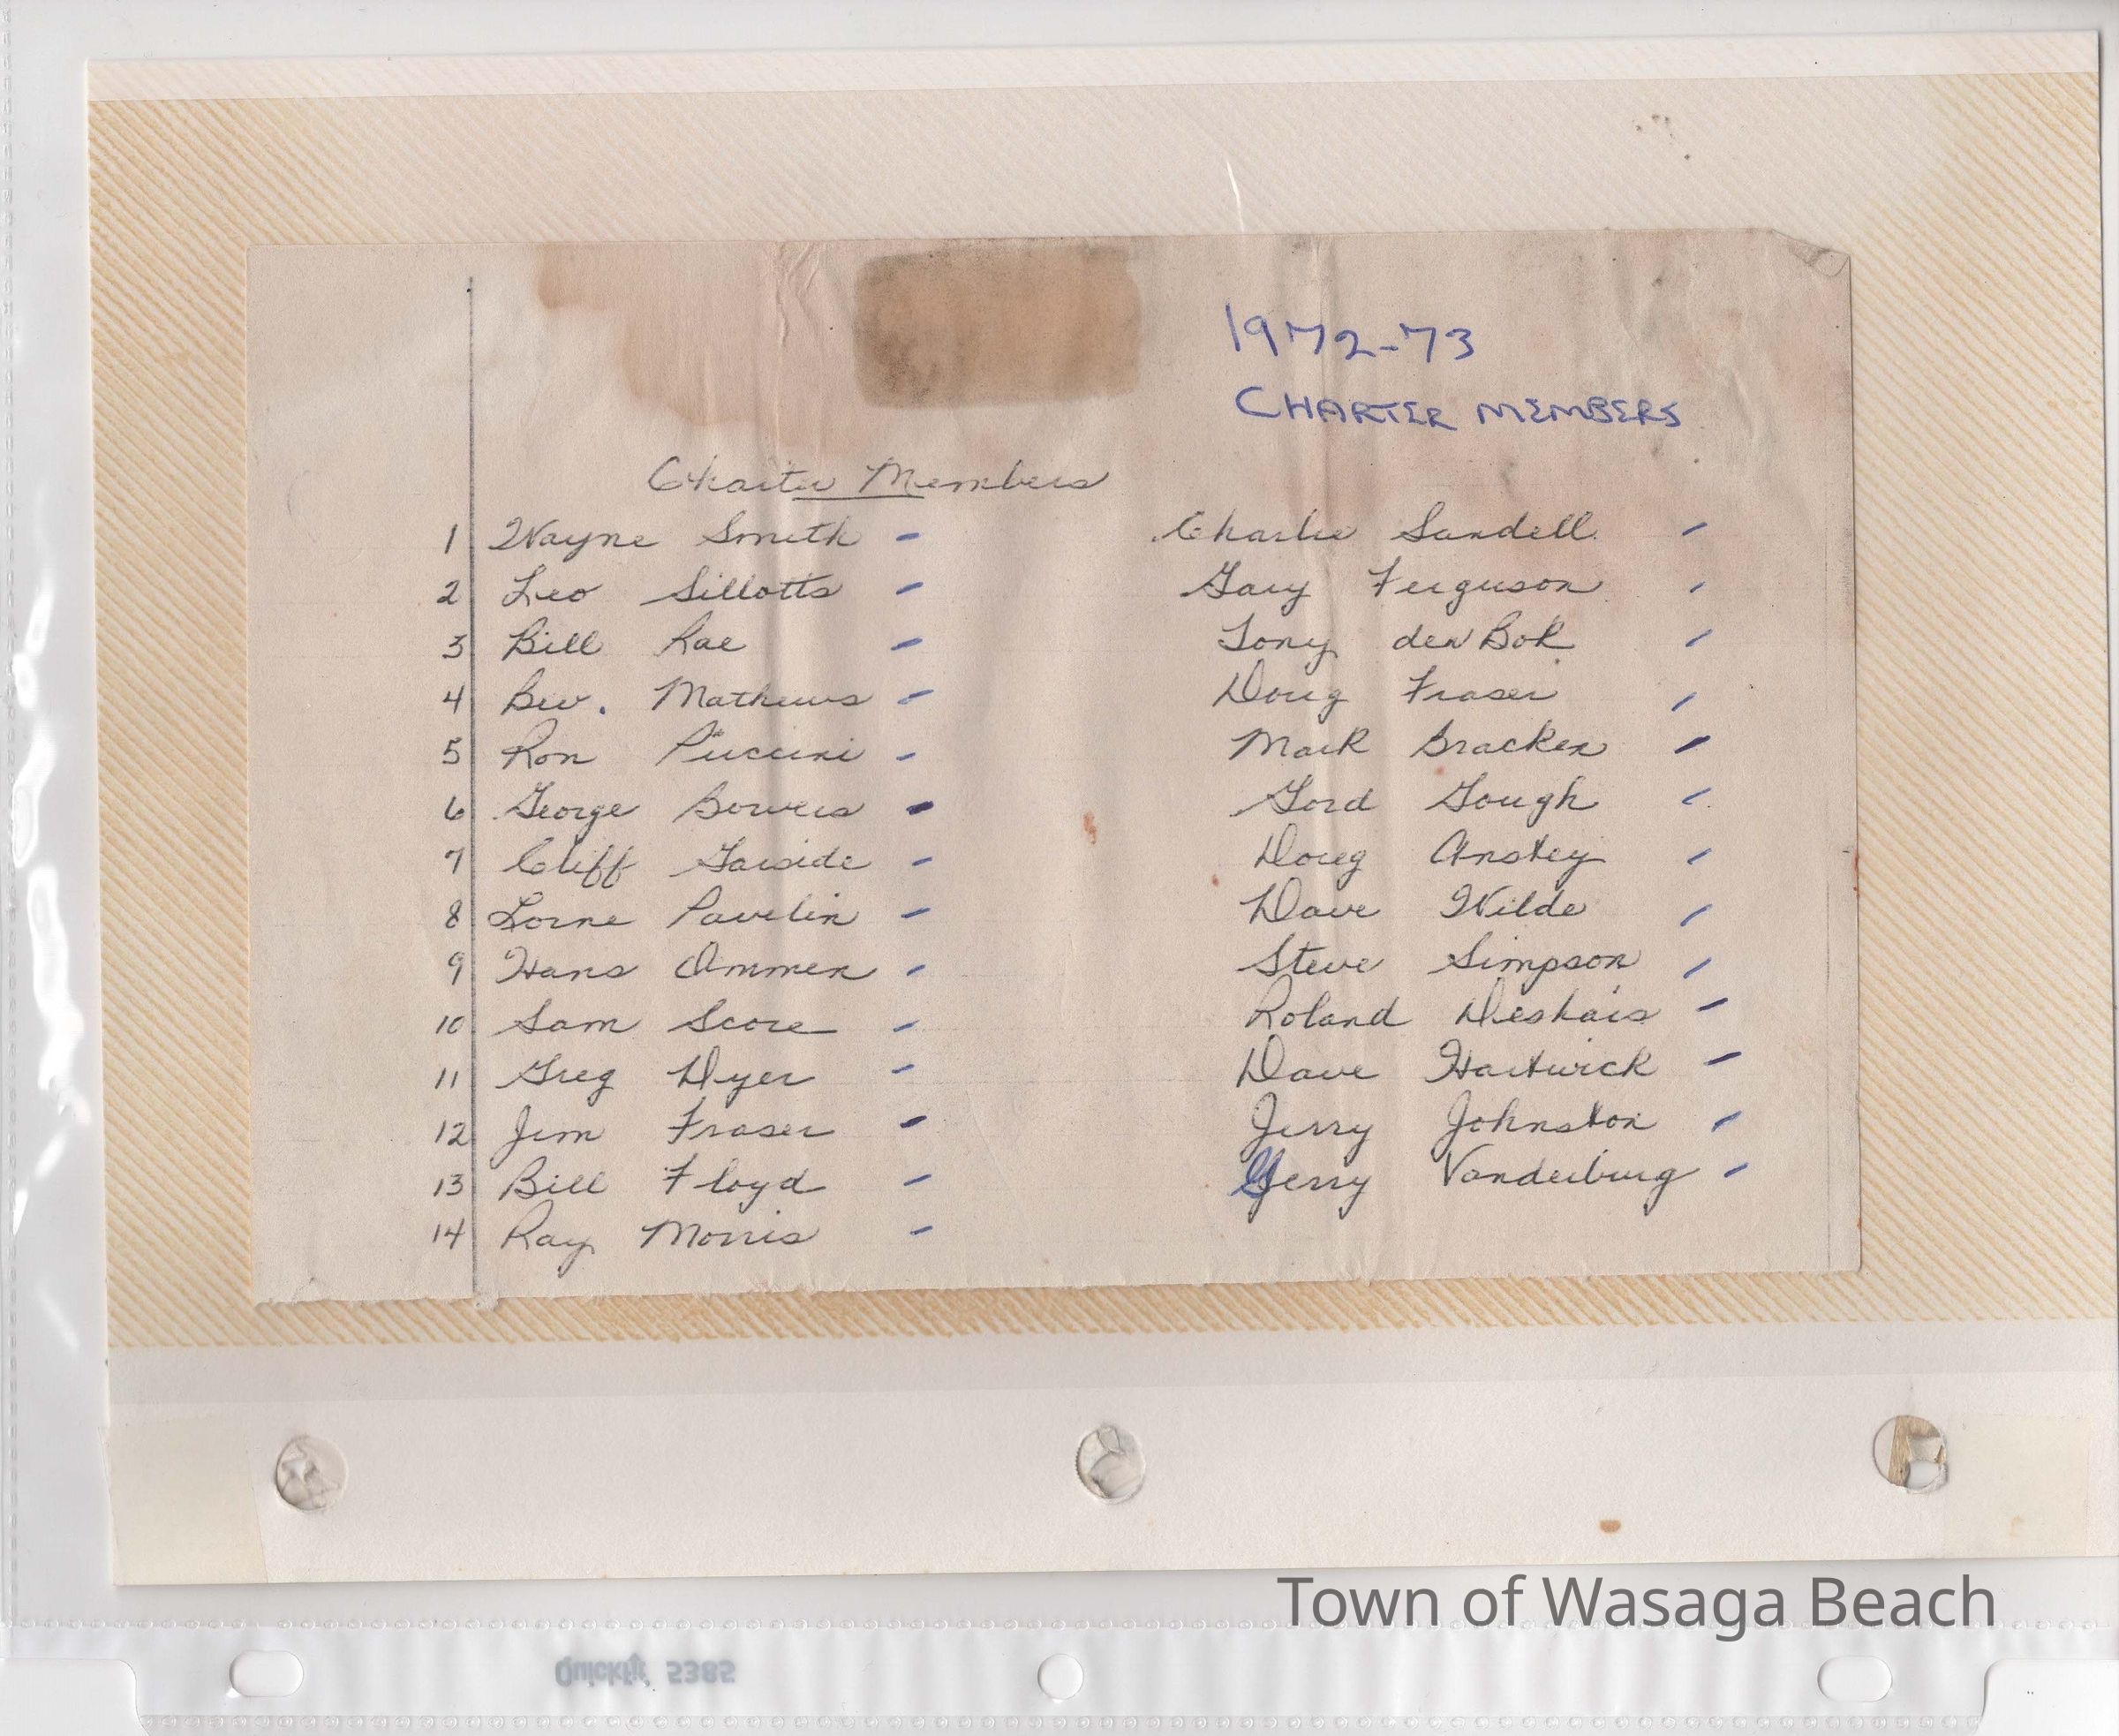 1972-73
CHARTER MEMBERS
Charter Members
1 Wayne Smith - Charlie Sandell -
2 Leo Sillotts - Gary Ferguson -
3 Bill Rae - Tony den Bok -
4 Bev. Mathews - Doug Fraser -
5 Ron Puccini - Mark Bracken -
6 George Bowers - Gord Gough -
7 Cliff Garside - Doug Anstey -
8 Lorne Pavelin - Dave Wilde -
9 Hans Ommen - Steve Simpson -
10 Sam Score - Roland Deshais -
11 Greg Dyer - Dave Hartwick -
12 Jim Fraser - Jerry Johnston -
13 Bill Floyd - Gerry Vanderburg -
14 Ray Morris -
Town of Wasaga Beach
5385